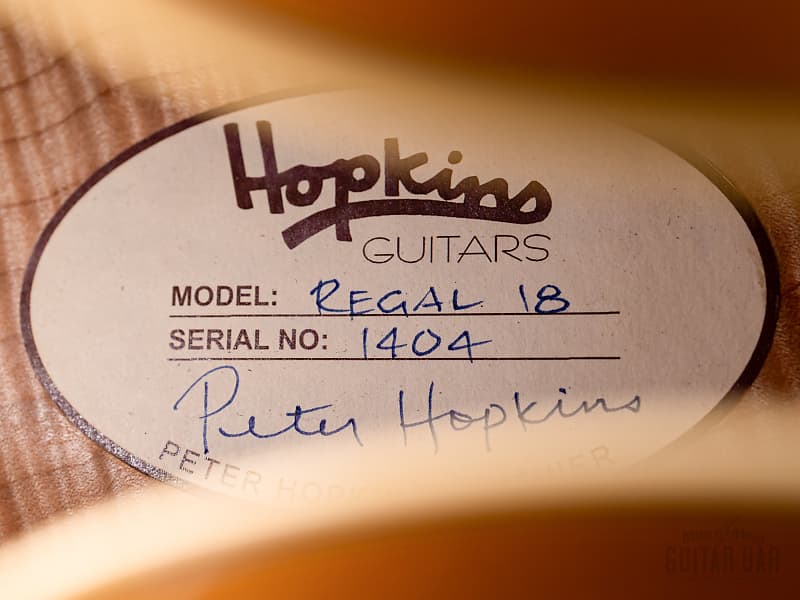 Hopkins
GUITARS
MODEL: REGAL 18
SERIAL NO: 1404
Peter Hopkins
PETER
GUITAR BAR